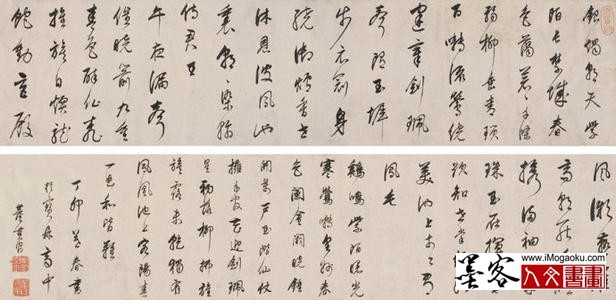 銀燭朝天紫
陌長禁城春
色藹蒼蒼千條
弱柳垂青瑣
百囀流鶯繞
建章劍珮
聲隨玉墀
步衣冠身
惹御爐香共
沐恩波鳳池
裏朝朝染翰
侍君王
午夜漏聲
催曉箭九重
春色醉仙桃
旌旗日煖龍
蛇動宮殿
風微燕雀
高朝罷香煙
攜滿袖詩成
珠玉在揮毫
欲知世掌絲綸
美池上于今有
鳳毛
雞鳴紫陌曙光
寒鶯囀皇州春
色闌金闕曉鐘
開萬戶玉階仙仗
擁千官花迎劍珮
星初落柳拂旌
旗露未乾獨有
鳳凰池上客陽春
一曲和皆難
丁卯暮春書
於寶鼎高中
董其昌
www.iMogaoku.com
墨客
人文書畫